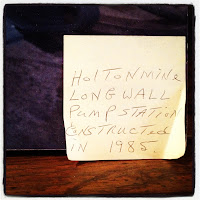 HOLTON MINE
LONG WALL
PUMP STATION
CONSTRUCTED
IN 1985.